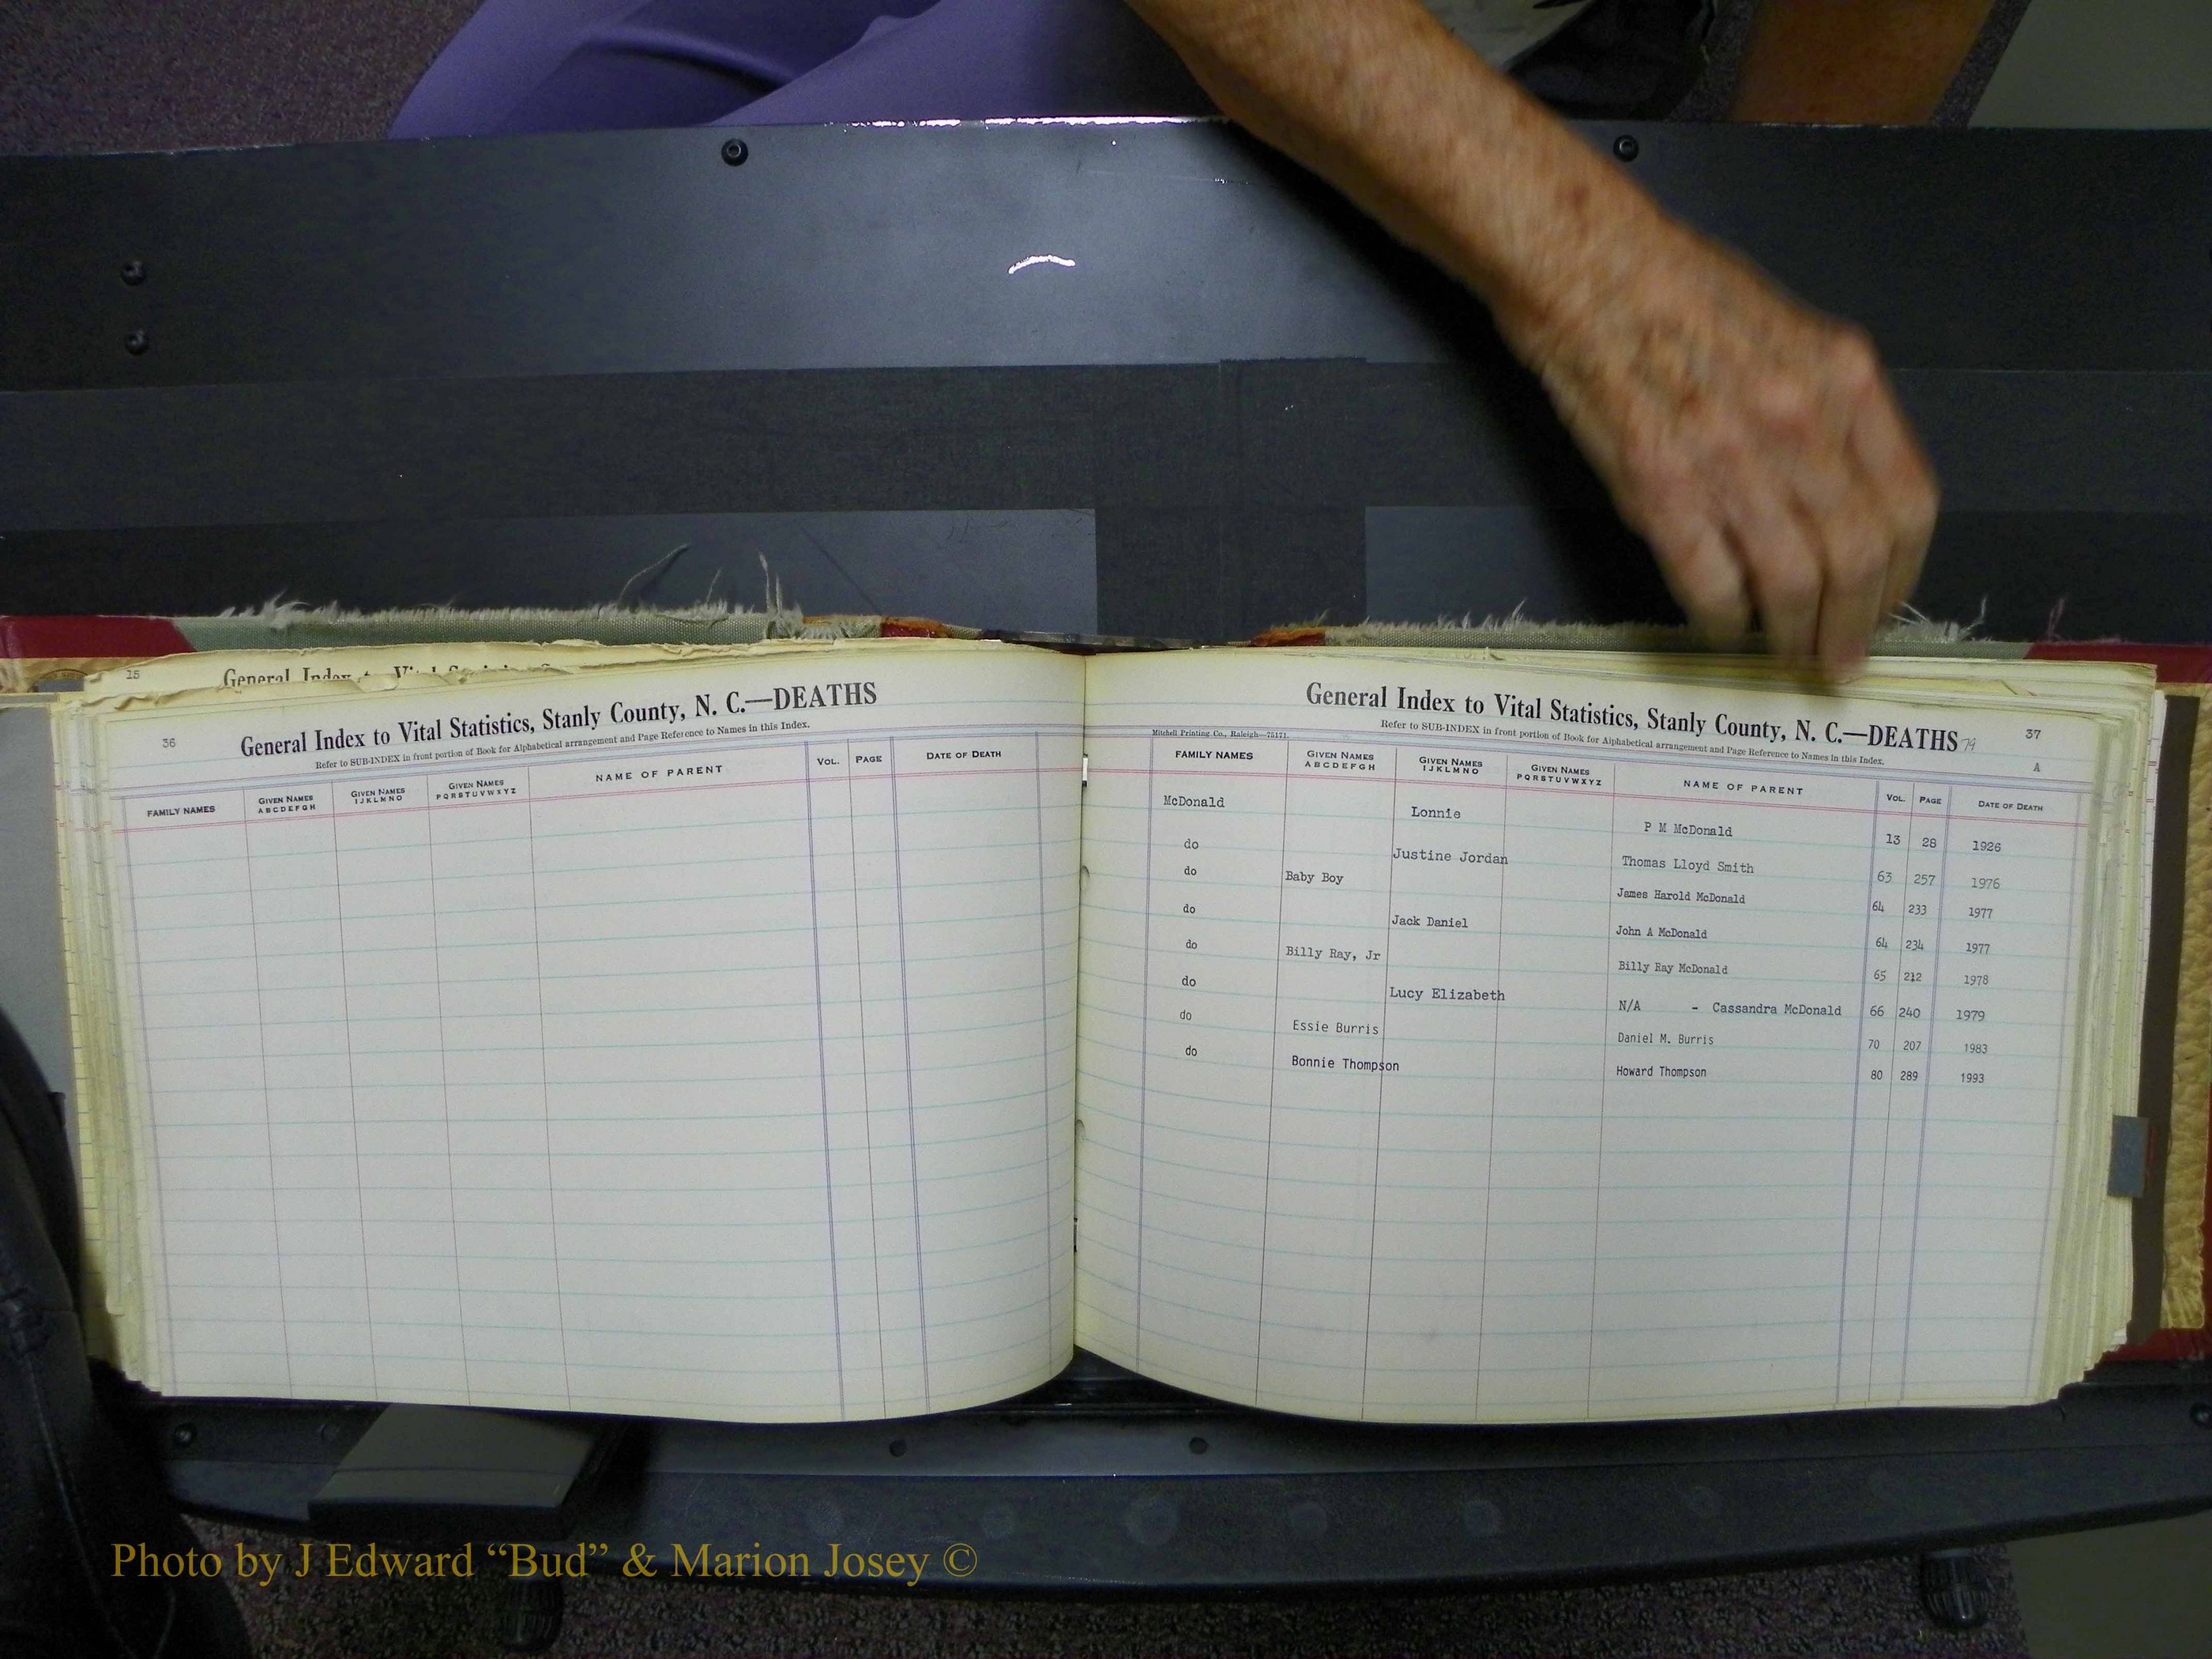 15
General Index to Vital Statistics
36
General Index to Vital Statistics, Stanly County, N. C.—DEATHS
Refer to SUB-INDEX in front portion of Book for Alphabetical arrangement and Page Reference to Names in this Index.
FAMILY NAMES GIVEN NAMES ABCDEFGH GIVEN NAMES IJKLMNO GIVEN NAMES PQRSTUVWXYZ NAME OF PARENT VOL. PAGE DATE OF DEATH
General Index to Vital Statistics, Stanly County, N. C.—DEATHS 79
37
A
Refer to SUB-INDEX in front portion of Book for Alphabetical arrangement and Page Reference to Names in this Index.
Mitchell Printing Co., Raleigh—75171.
FAMILY NAMES GIVEN NAMES ABCDEFGH GIVEN NAMES IJKLMNO GIVEN NAMES PQRSTUVWXYZ NAME OF PARENT VOL. PAGE DATE OF DEATH
McDonald Lonnie P M McDonald 13 28 1926
do Justine Jordan Thomas Lloyd Smith 63 257 1976
do Baby Boy James Harold McDonald 64 233 1977
do Jack Daniel John A McDonald 64 234 1977
do Billy Ray, Jr Billy Ray McDonald 65 212 1978
do Lucy Elizabeth N/A - Cassandra McDonald 66 240 1979
do Essie Burris Daniel M. Burris 70 207 1983
do Bonnie Thompson Howard Thompson 80 289 1993
Photo by J Edward “Bud” & Marion Josey ©